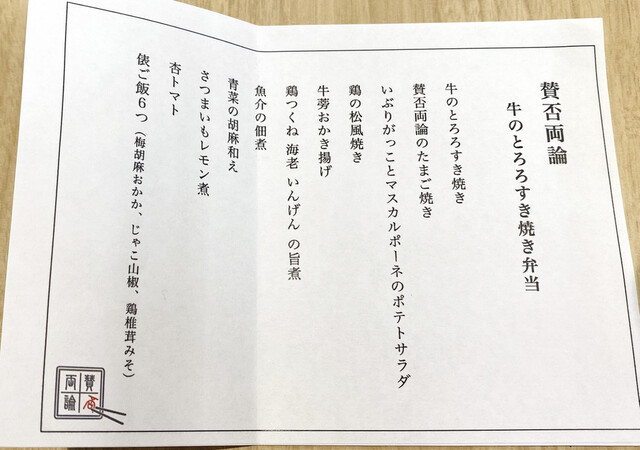 賛否両論
牛のとろろすき焼き弁当
牛のとろろすき焼き
賛否両論のたまご焼き
いぶりがっことマスカルポーネのポテトサラダ
鶏の松風焼き
牛蒡おかき揚げ
鶏つくね 海老 いんげん の旨煮
魚介の佃煮
青菜の胡麻和え
さつまいもレモン煮
杏トマト
俵ご飯6つ（梅胡麻おかか、じゃこ山椒、鶏椎茸みそ）
賛否
両論